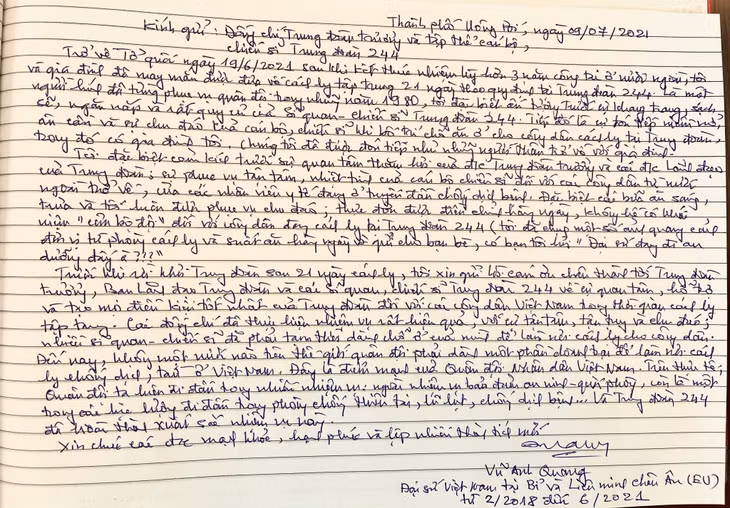 Thành phố Uông Bí, ngày 09/07/2021
Kính gửi: Đồng chí Trung đoàn trưởng và tập thể cán bộ,
chiến sĩ Trung đoàn 244
Trở về Tổ quốc ngày 19/6/2021 sau khi kết thúc nhiệm kỳ hơn 3 năm công tác ở nước ngoài, tôi
và gia đình đã may mắn được đưa về cách ly tập trung 21 ngày theo quy định tại Trung đoàn 244. Là một
người lính đã từng phục vụ quân đội trong những năm 1980, tôi đặc biệt ấn tượng trước sự khang trang, sạch
sẽ, ngăn nắp và rất quy củ của sĩ quan - chiến sĩ Trung đoàn 244. Tiếp đó là sự đón tiếp niềm nở,
ân cần và sự chu đáo của cán bộ, chiến sĩ khi bố trí chỗ ăn ở cho công dân cách ly tại Trung đoàn,
trong đó có gia đình tôi. Chúng tôi đã được đón tiếp như những người thân trở về với gia đình.
Tôi đặc biệt cảm kích trước sự quan tâm thăm hỏi của đ/c Trung đoàn trưởng và các đ/c Lãnh đạo
của Trung đoàn; sự phục vụ tận tâm, nhiệt tình của cán bộ chiến sĩ đối với các công dân từ nước
ngoài trở về, của các nhân viên y tế đang ở tuyến đầu chống dịch bệnh. Đặc biệt các bữa ăn sáng,
trưa và tối luôn được phục vụ chu đáo, thực đơn được điều chỉnh hàng ngày, không hề có khái
niệm "cơm bộ đội" đối với công dân đang cách ly tại Trung đoàn 244 (tôi đã chụp một số ảnh quang cảnh
đơn vị từ phòng cách ly và suất ăn hàng ngày và gửi cho bạn bè, có bạn tôi hỏi "Đại sứ đang đi an
dưỡng đấy à???"
Trước khi rời khỏi Trung đoàn sau 21 ngày cách ly, tôi xin gửi lời cảm ơn chân thành tới Trung đoàn
trưởng, Ban Lãnh đạo Trung đoàn và các sĩ quan, chiến sĩ Trung đoàn 244 về sự quan tâm, hỗ trợ
và tạo mọi điều kiện tốt nhất của Trung đoàn đối với các công dân Việt Nam trong thời gian cách ly
tập trung. Các đồng chí đã thực hiện nhiệm vụ rất hiệu quả, với sự tận tâm, tận tụy và chu đáo;
nhiều sĩ quan - chiến sĩ đã phải tạm thời dâng chỗ ở của mình để làm nơi cách ly cho công dân.
Đến nay, không một nước nào trên thế giới quân đội phải dâng một phần doanh trại để làm nơi cách
ly chống dịch, trừ ở Việt Nam. Đây là điểm mạnh của Quân đội Nhân dân Việt Nam. Trên thực tế,
Quân đội ta luôn đi đầu trong nhiều nhiệm vụ: ngoài nhiệm vụ bảo đảm an ninh - quốc phòng, còn là một
trong các lực lượng đi đầu trong phòng chống thiên tai, lũ lụt, chống dịch bệnh... Và Trung đoàn 244
đã hoàn thành xuất sắc nhiệm vụ này.
Xin chúc các đ/c mạnh khỏe, hạnh phúc và lập nhiều thành tích mới
Vũ Anh Quang
Đại sứ Việt Nam tại Bỉ và Liên minh châu Âu (EU)
từ 2/2018 đến 6/2021